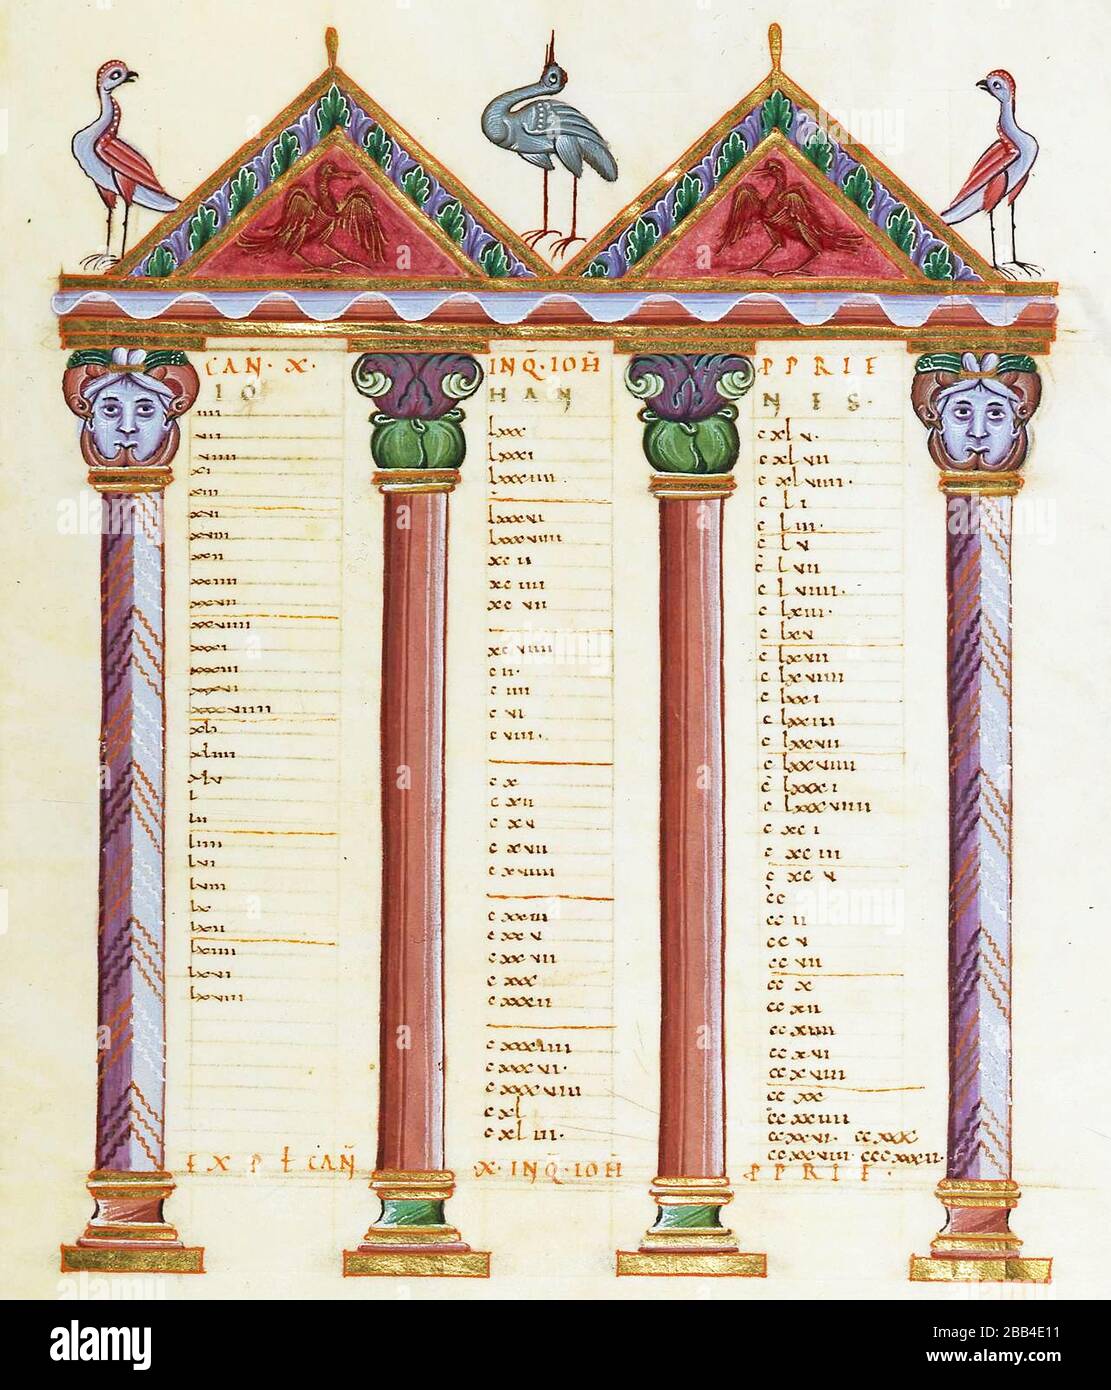 CAN · X ·
IO
IIII
VII
VIIII
XI
XIII
XVI
XVIII
XXII
XXIIII
XXVII
XXVIIII
XXXI
XXXIII
XXXVI
XXXVIIII
XL
XLIIII
XLV
L
LII
LIIII
LVI
LVIII
LX
LXII
LXIIII
LXVI
LXVIII
EXPŁ CAÑ
INQ · IOH̄
HAN
lxxx
lxxxi
lxxxiiii
lxxxvi
lxxxviiii
xc ii
xc iiii
xc vii
xc viiii
c ii·
c iiii
c vi
c viii·
c x
c xii
c xv
c xvii
c xviiii
c xxiii
c xxv
c xxvii
c xxx
c xxxii
c xxxiiii
c xxxvi·
c xxxviiii
c xl
c xl iii·
X · INQ · IOH̄
PPRIE
NIS·
c xl v·
c xl vii
c xl viiii·
c l i
c l iii·
c l v
c l vii
c l viiii·
c lxiii·
c lxv
c lxvii
c lxviiii
c lxxi
c lxxiii
c lxxvii
c lxxviiii
c lxxxi
c lxxxviiii
c xc i
c xc iii
c xc v
cc
cc ii
cc v
cc vii
cc x
cc xii
cc xiiii
cc xvi
cc xviii
cc xx
cc xxiiii
cc xxvi· cc xxx
cc xxviii ccc xxxii·
PPRIE·
alamy
Image ID: 2BB4E11
www.alamy.com